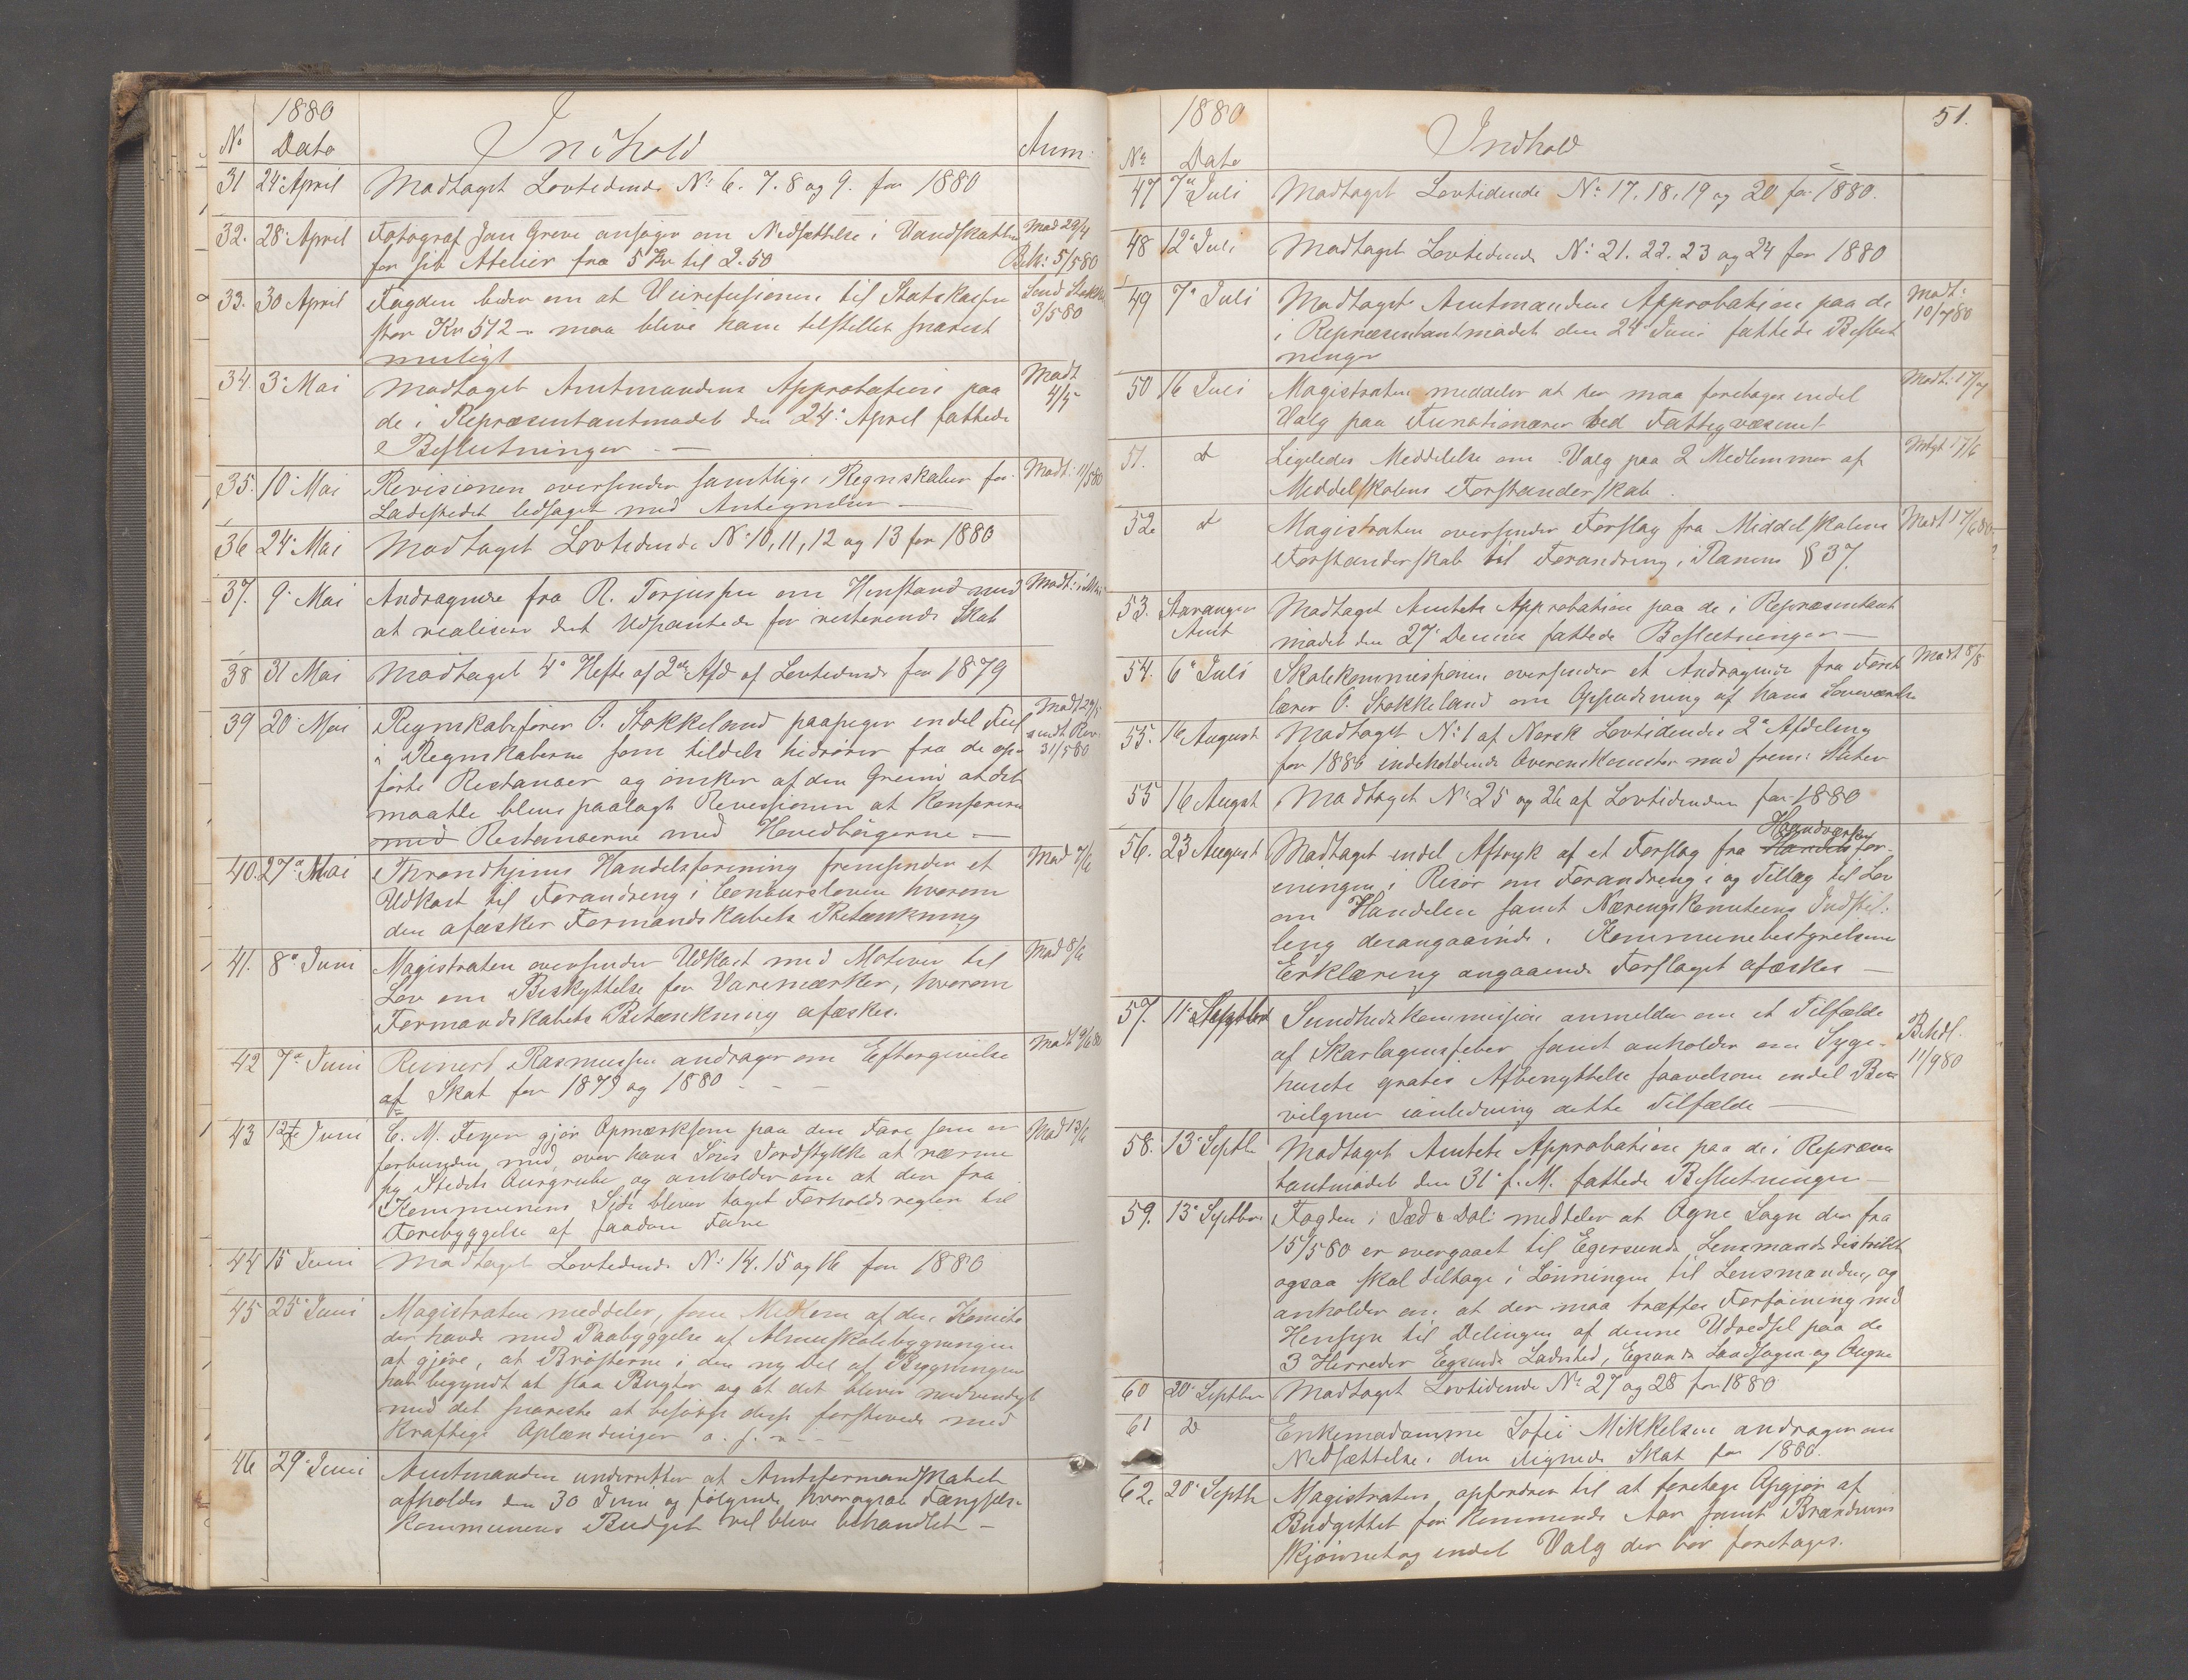 1880
No Dato Indhold Anm:
31 24' April Modtaget Lovtidende No: 6. 7. 8 og 9. for 1880
32. 28' April Fotograf Jan Greve ansøger om Nedsættelse i Vandskatten Mod 29/4
for sit Atelier fra 5 Kr til 2.50 Beh: 5/5 80
33. 30 April Fogden beder om at Veirefusionen til Statskassen Send
stor Kr 512 – maa blive ham tilstillet snarest 3/5 80
muligt
34. 3' Mai Modtaget Amtmandens Approbation paa Modt
de i Repræsentantmødet den 24' April fattede 4/5
Beslutninger –
35. 10' Mai Revisionen oversender samtlige Regnskaber for Modt: 11/5 80
Ladestedet ledsaget med Antegnelser –
36 24' Mai Modtaget Lovtidende No 10, 11, 12 og 13 for 1880
37. 9' Mai Andragende fra R. Torjussen om Henstand med Modt:
at realisere det Udpantede for resterende Skat
38 31 Mai Modtaget 4' Hefte af 2den Afd af Lovtidende for 1879
39 20' Mai Regnskabsfører O. Stokkeland paapeger endel Feil Modt
i Regnskaberne som tildels hidrører fra de op- sendt Rev.
førte Restancer og ønsker af den Grund at det 31/5 80
maatte blive paalagt Revisionen at konferere
med Restancerne med Hovedbøgerne –
40. 27' Mai Throndhjems Handelsforening fremsender et Mod 7/6
Udkast til Forandring i Concursloven hvorom
den afæsker Formandskabets Betænkning
41. 8' Juni Magistraten oversender Udkast med Motiver til Mod 8/6
Lov om Beskyttelse for Varemærker, hvorom
Formandskabets Betænkning afæskes.
42 7' Juni Reinert Rasmussen andrager om Eftergivelse Modt 9/6 80
af Skat for 1879 og 1880 - - -
43 12te Juni C. M. Feyer gjør Opmærksom paa den Fare som er Mod 13/6
forbunden med, over hans Jordstykke at nærme
sig Stedets Aurgrube og anholder om at der fra
Kommunens Side bliver taget Forholdsregler til
Forebyggelse af saadan Fare
44 15 Juni Modtaget Lovtidende No: 14. 15 og 16 for 1880
45 25' Juni Magistraten meddeler, som Medlem af den Komite
der havde med Paabyggelse af Almueskolebygningen
at gjøre, at Brøsterne i den ny Del af Bygningen
har begyndt at slaa Bugter og at det bliver nødvendigt
med det snareste at besørge disse forstevede med
kraftige Aplændinger o. s. v - - -
46 29' Juni Amtmanden underretter at Amtsformandskabet
afholdes den 30 Juni og følgende, hvorogsaa Fængsels-
kommunens Budget vil blive behandlet –
51.
1880
No Dato Indhold
47 7' Juli Modtaget Lovtidende No: 17. 18. 19 og 20 for 1880.
48 12' Juli Modtaget Lovtidende No: 21. 22. 23 og 24 for 1880
49 7' Juli Modtaget Amtmandens Approbation paa de Modt:
i Repræsentantmødet den 24' Juni fattede Beslut 10/7 80
ninger
50 16 Juli Magistraten meddeler at der maa foretages endel Modt: 17/7
Valg paa Funktionærer ved Fattigvæsenet
51. d Ligeledes Meddelelse om Valg paa 2 Medlemmer af 17/6
Middelskolens Forstanderskab.
52. d Magistraten oversender Forslag fra Middelskolens Modt 17/6 80
Forstanderskab til Forandring i Planens § 37.
53. Stavanger Modtaget Amtets Approbation paa de i Repræsentant
Amt mødet den 27' Dennes fattede Beslutninger –
54. 6' Juli Skolekommissionen oversender et Andragende fra Første Modt 8/8
lærer O. Stokkeland om Oppudsning af hans Loveværelse
55. 16 August Modtaget No: 1 af Norsk Lovtidendes 2' Afdeling
for 1880 indeholdende Overenskomster med frem: Stater
55 16 Augst Modtaget No 25 og 26 af Lovtidenden for 1880
Haandværker
56. 23' August Modtaget endel Aftryk af et Forslag fra Handels for-
eningen i Risør om Forandring i og Tillæg til Lov
om Handelen samt Næringskomiteens Indstil:
ling derangaaende. Kommunebestyrelsens
Erklæring angaaende Forslaget afæskes –
57. 11' Septbr Sundhedskommission anmelder om et Tilfælde Behdl.
af Skarlagensfeber samt anholder om Syge- 11/9 80
husets gratis Afbenyttelse saavelsom endel Be-
vilgner ianledning dette Tilfælde –
58. 13' Septbr Modtaget Amtets Approbation paa de i Repræsen
tantmødet den 31' f. M. fattede Beslutninger –
59. 13' Septbr Fogden i Jæd & Dale meddeler at Ogne Sogn der fra
15/5 80 er overgaaet til Egersunds Lensmandsdistrikt
ogsaa skal deltage i Lønningen til Lensmanden, og
anholder om at der maa træffes Forføining med
Hensyn til Delingen af denne Udredsel paa de
3 Herreder Egsunds Ladested, Egsunds Landsogn og Ougne
60 20' Septbr Modtaget Lovtidende No 27 og 28 for 1880
61 d Enkemadamme Sofie Mikkelsen andrager om
Nedsættelse i den ilignede Skat for 1880.
62. 20' Septbr Magistraten opfordrer til at foretage Opgjør af
Budgettet for kommende Aar samt Brændevins
skjønnet og endel Valg der bør foretages.